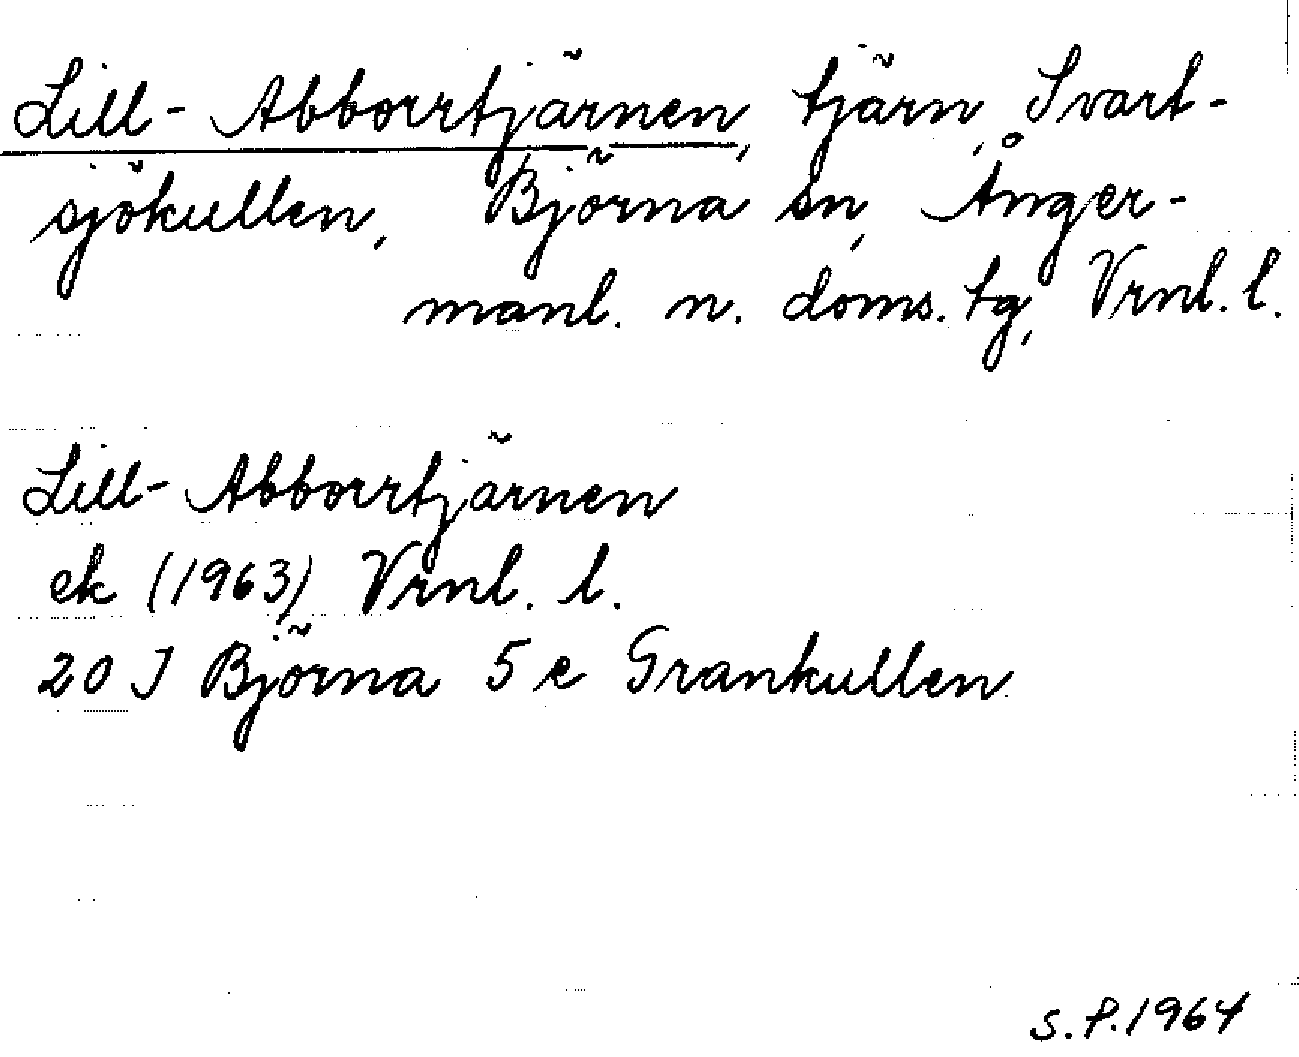 Lill-Abborrtjärnen, tjärn, Svart-
sjökullen, Björna sn, Ånger-
manl. n. doms. tg, Vrnl. l.
Lill-Abborrtjärnen
ek (1963) Vrnl. l.
20 J Björna 5 e Grankullen
S.P. 1964